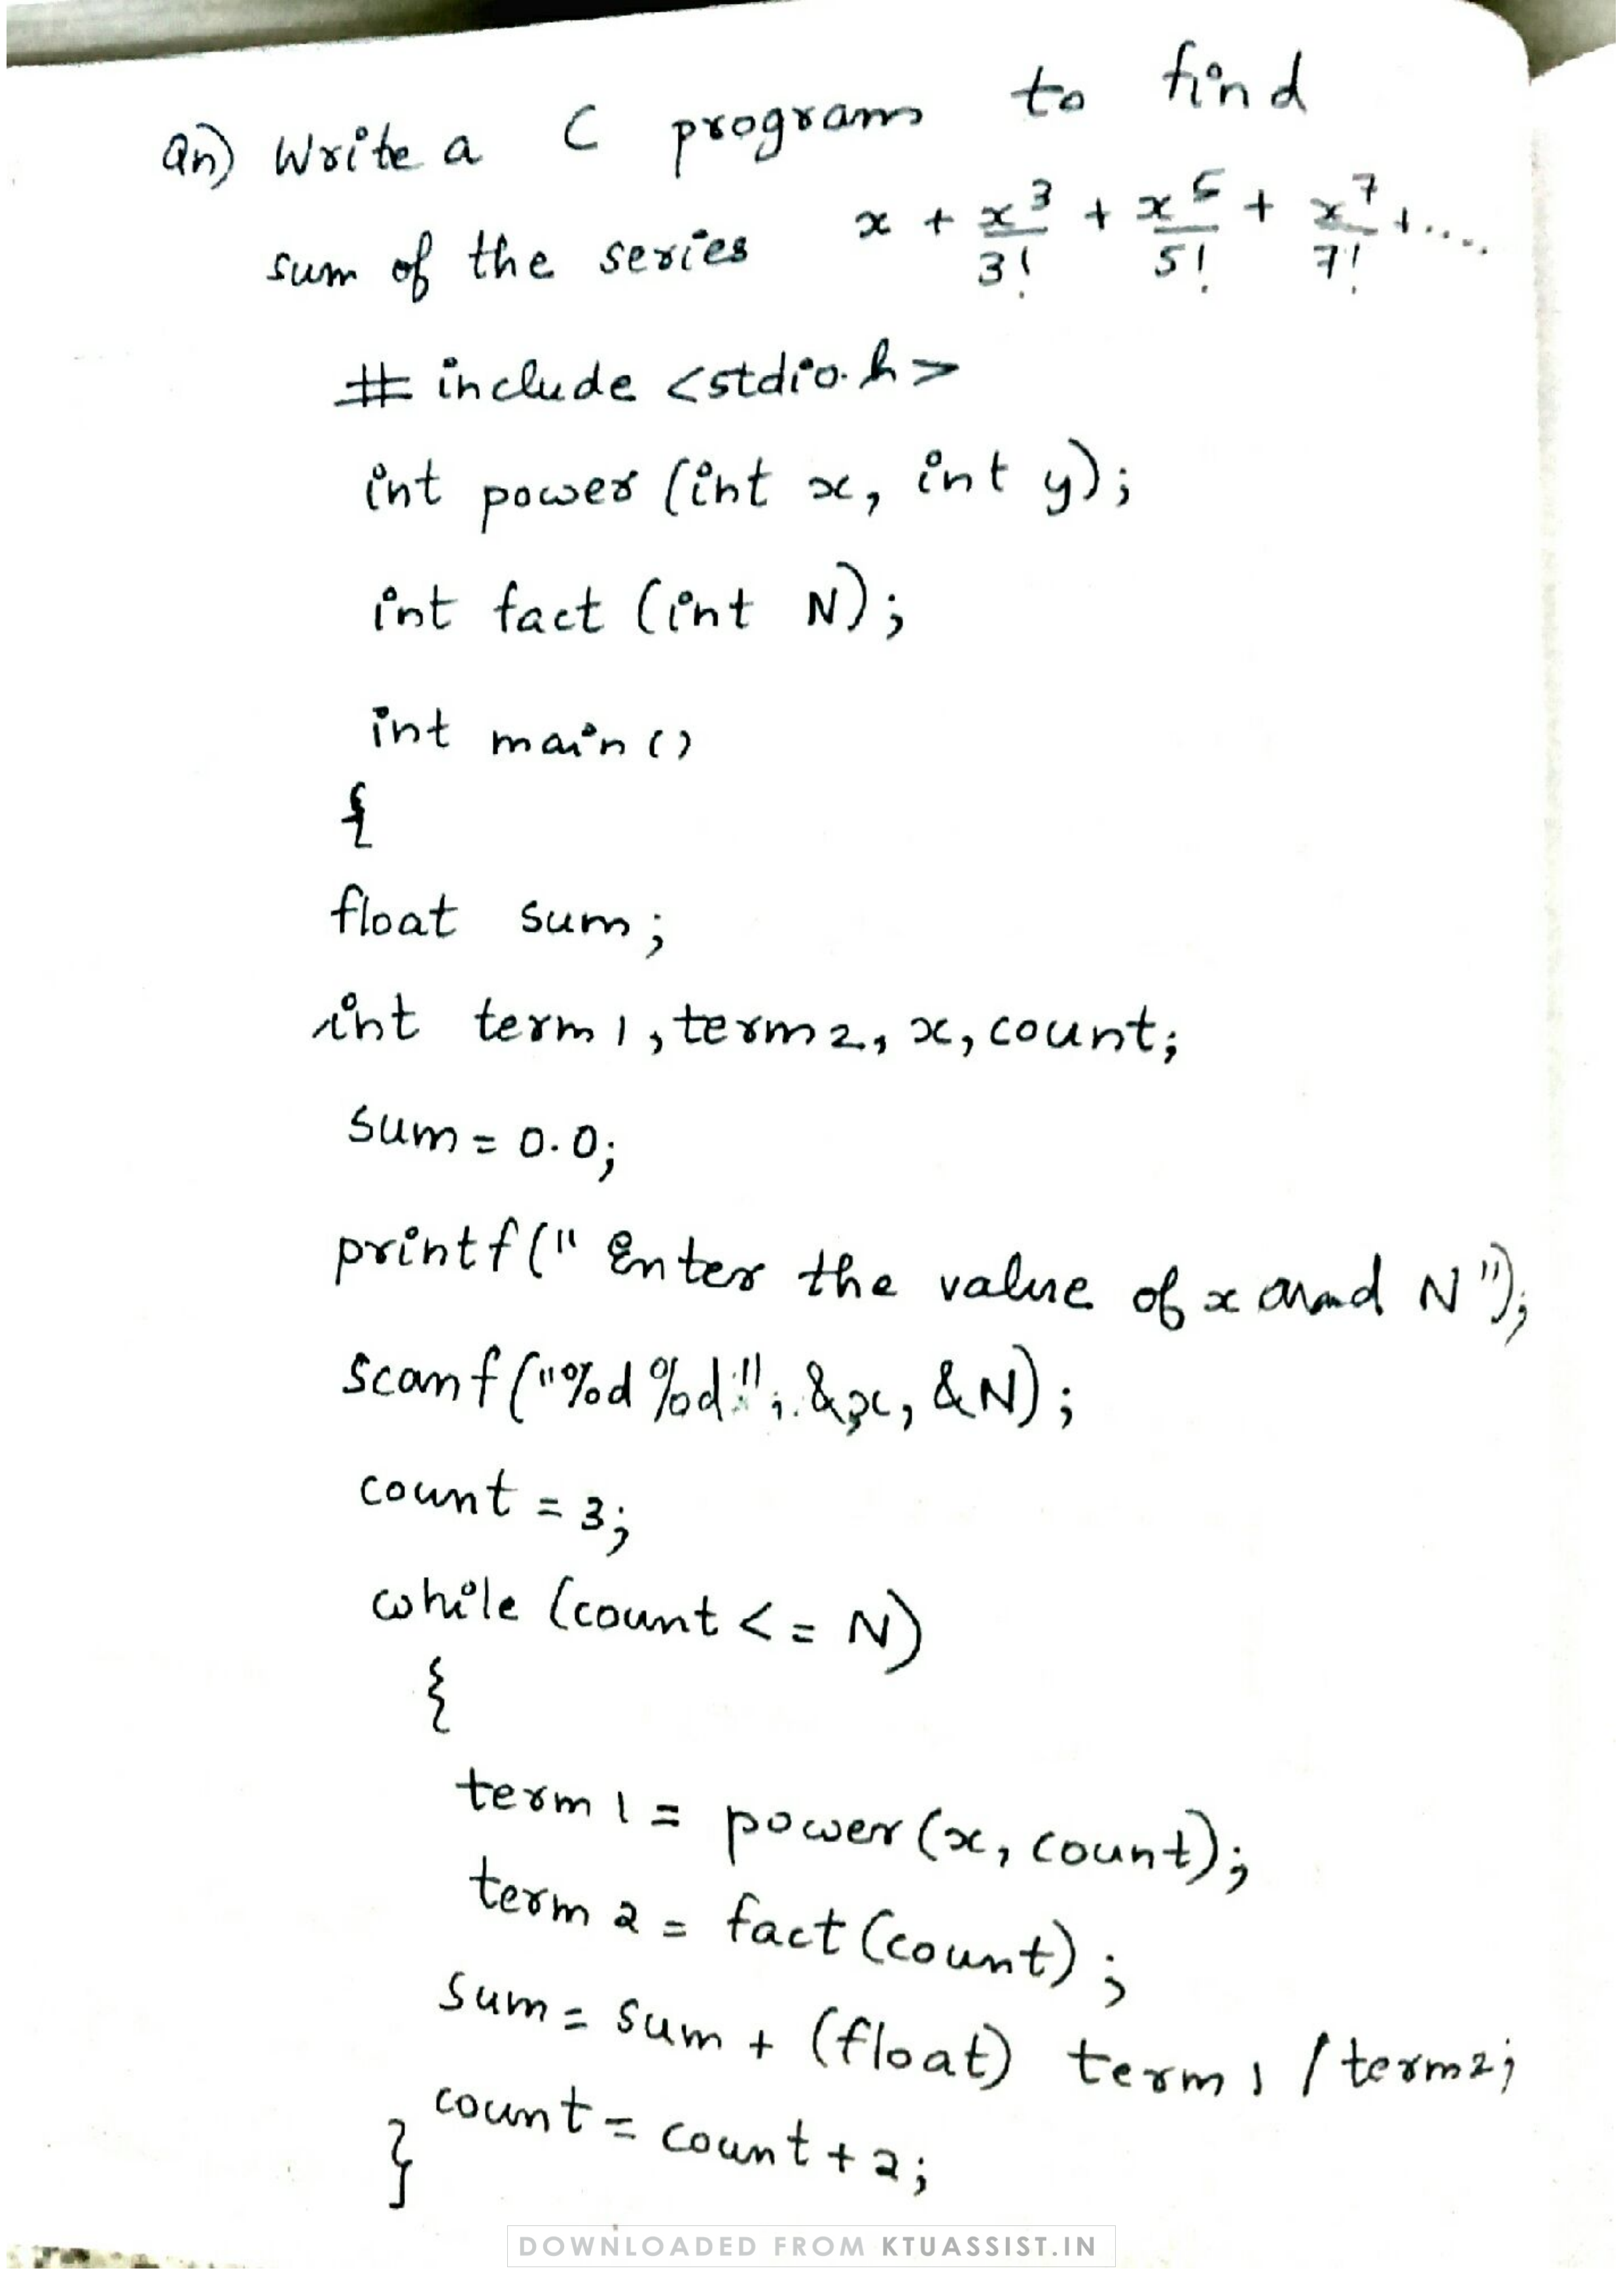 Qn) Write a C program to find
sum of the series x + x^3/3! + x^5/5! + x^7/7! + ....
# include <stdio.h>
int power (int x, int y);
int fact (int N);
int main ()
{
float sum;
int term 1, term 2, x, count;
sum = 0.0;
printf (" Enter the value of x and N");
scanf ("%d %d", &x, &N);
count = 3;
while (count < = N)
{
term 1 = power (x, count);
term 2 = fact (count);
sum = sum + (float) term 1 / term 2;
count = count + 2;
}
DOWNLOADED FROM KTUASSIST.IN